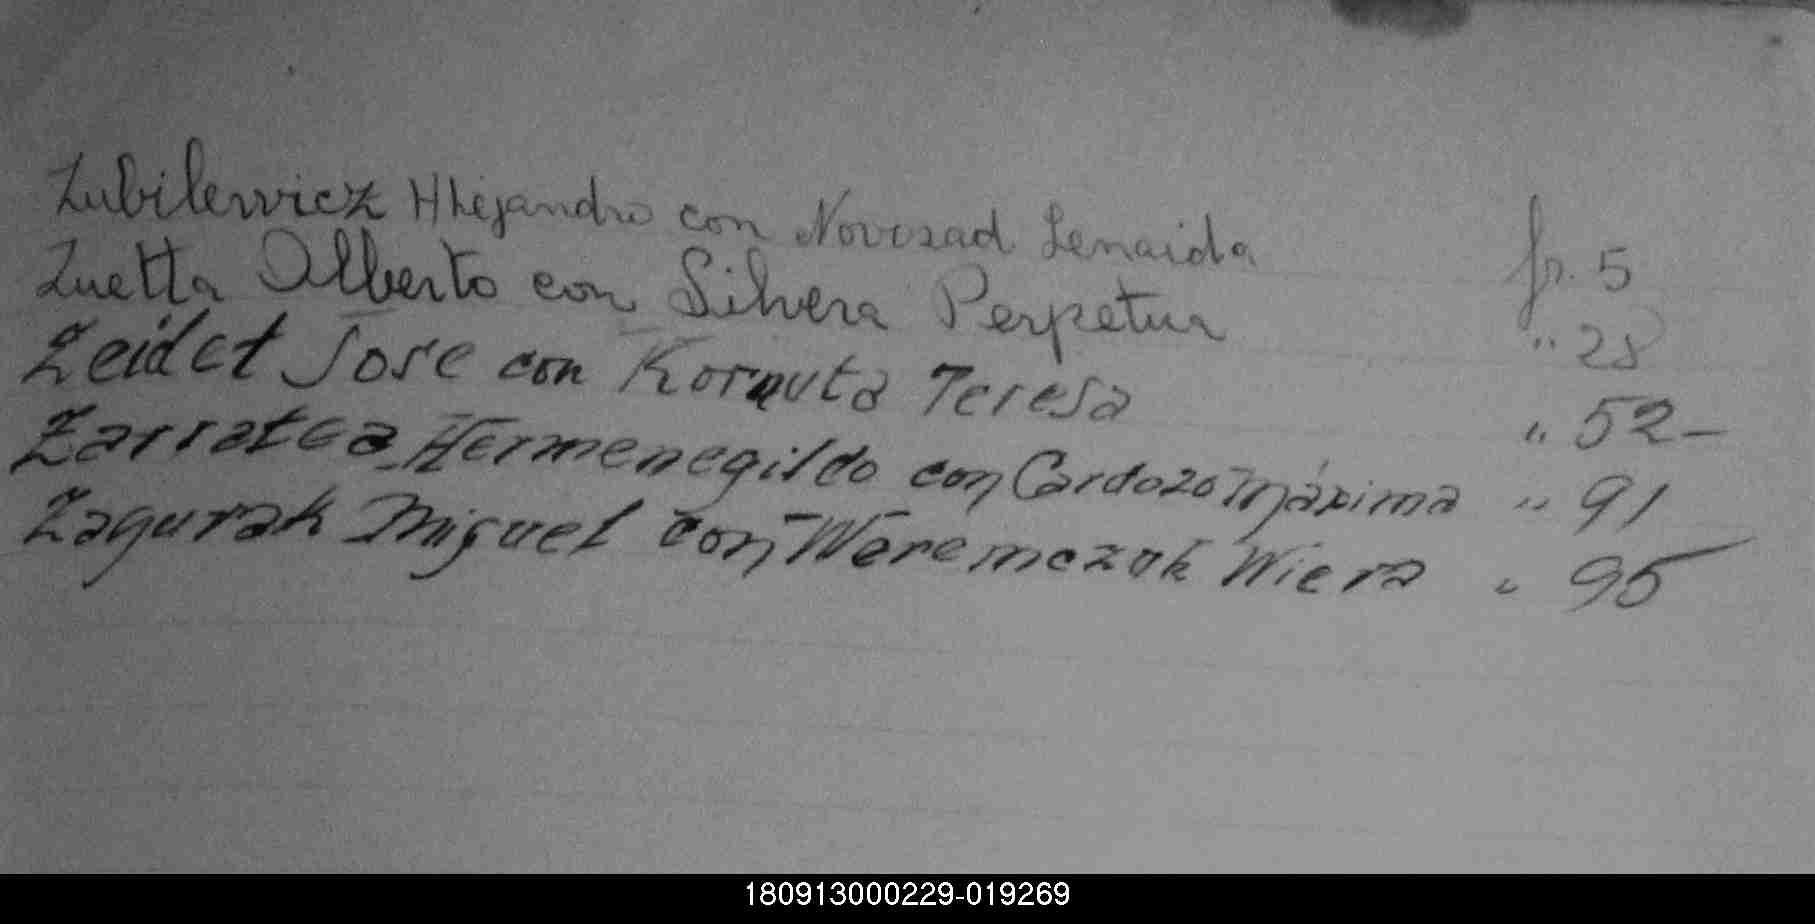 Zubilewicz Alejandro con Novosad Zenaida fs. 5
Zuetta Alberto con Silvera Perpetua " 28
Zeidet Jose con Kornuta Teresa " 52-
Zarratea Hermenegildo con Cardozo Máxima " 91
Zagurak Miguel con Weremczuk Wiera " 95
180913000229-019269